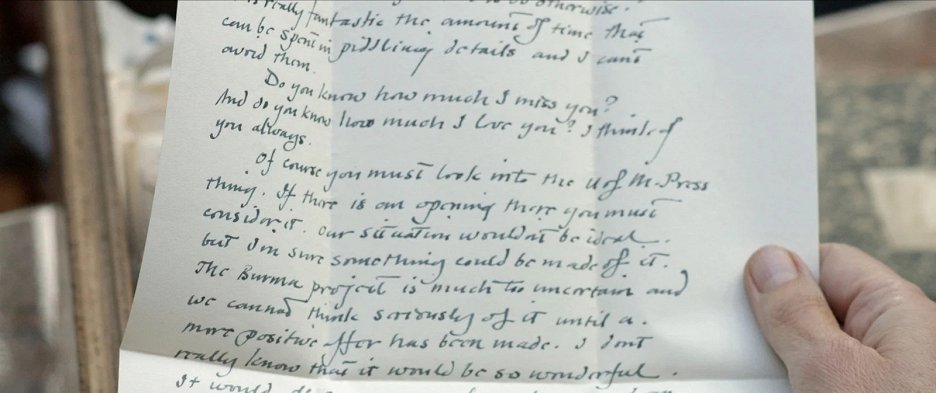 really fantastic the amount of time that
can be spent in piddling details and I can't
avoid them.
Do you know how much I miss you?
And do you know how much I love you? I think of
you always.
Of course you must look into the U of M. Press
thing. If there is an opening there you must
consider it. Our situation wouldn't be ideal.
but I'm sure something could be made of it.
The Burma project is much too uncertain and
we cannot think seriously of it until a.
more positive offer has been made. I don't
really know that it would be so wonderful.
It would